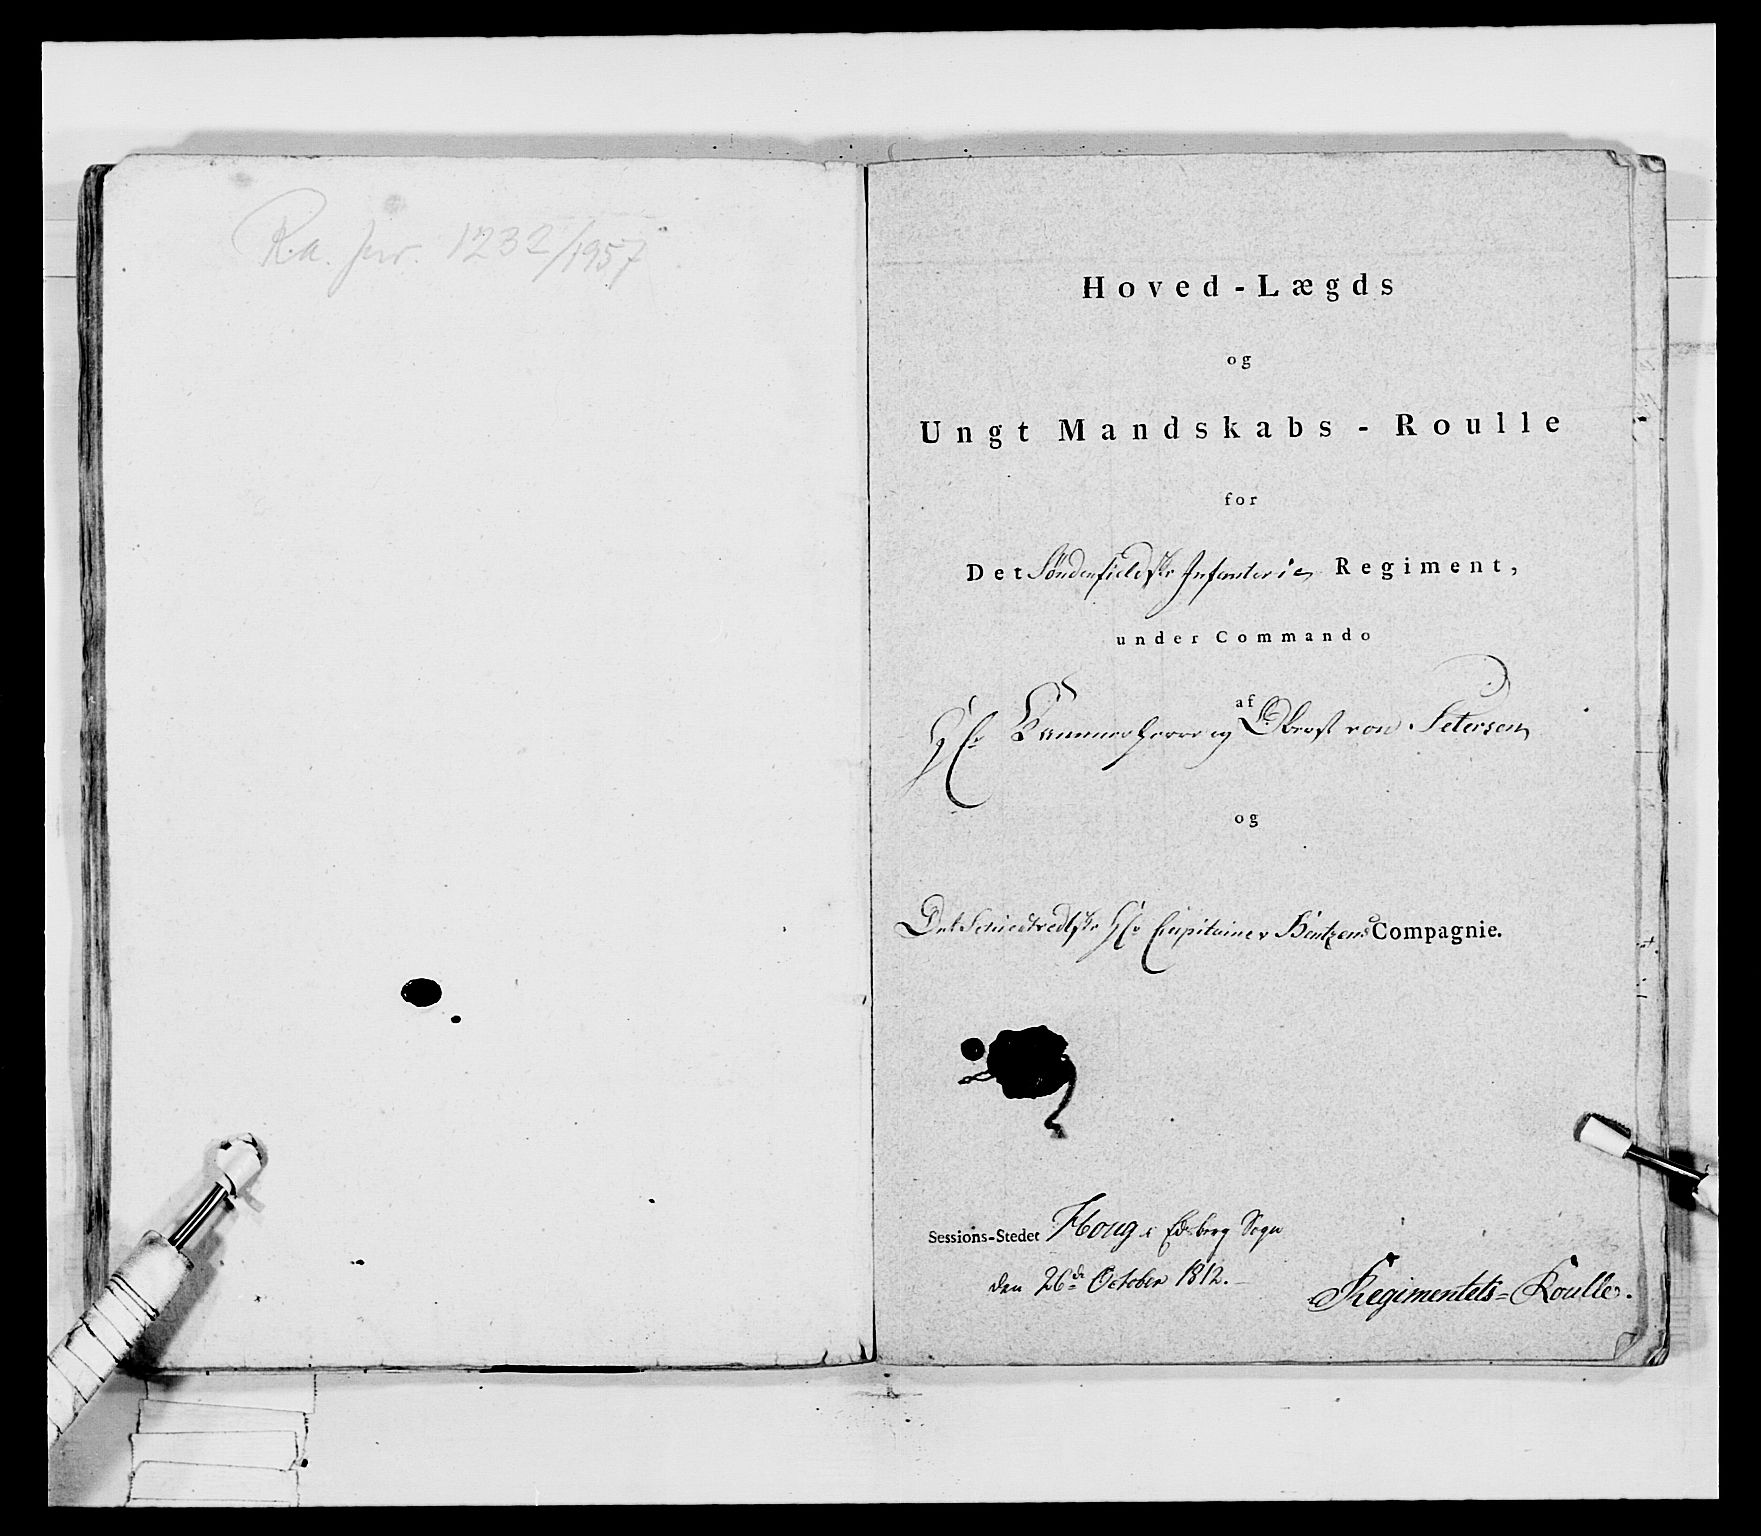 R.a. jnr. 1232/1957
Hoved-Lægds
og
Ungt Mandskabs-Roulle
for
Det Søndenfieldske Infanterie Regiment,
under Commando
af
Hr Kammerherre og Oberst von Petersen
og
Det Schiedtvedtske Hr Capitaine v Hintzens Compagnie.
Sessions-Stedet Houg i Edsberg Sogn
den 26de October 1812.
Regimentets-Roulle.